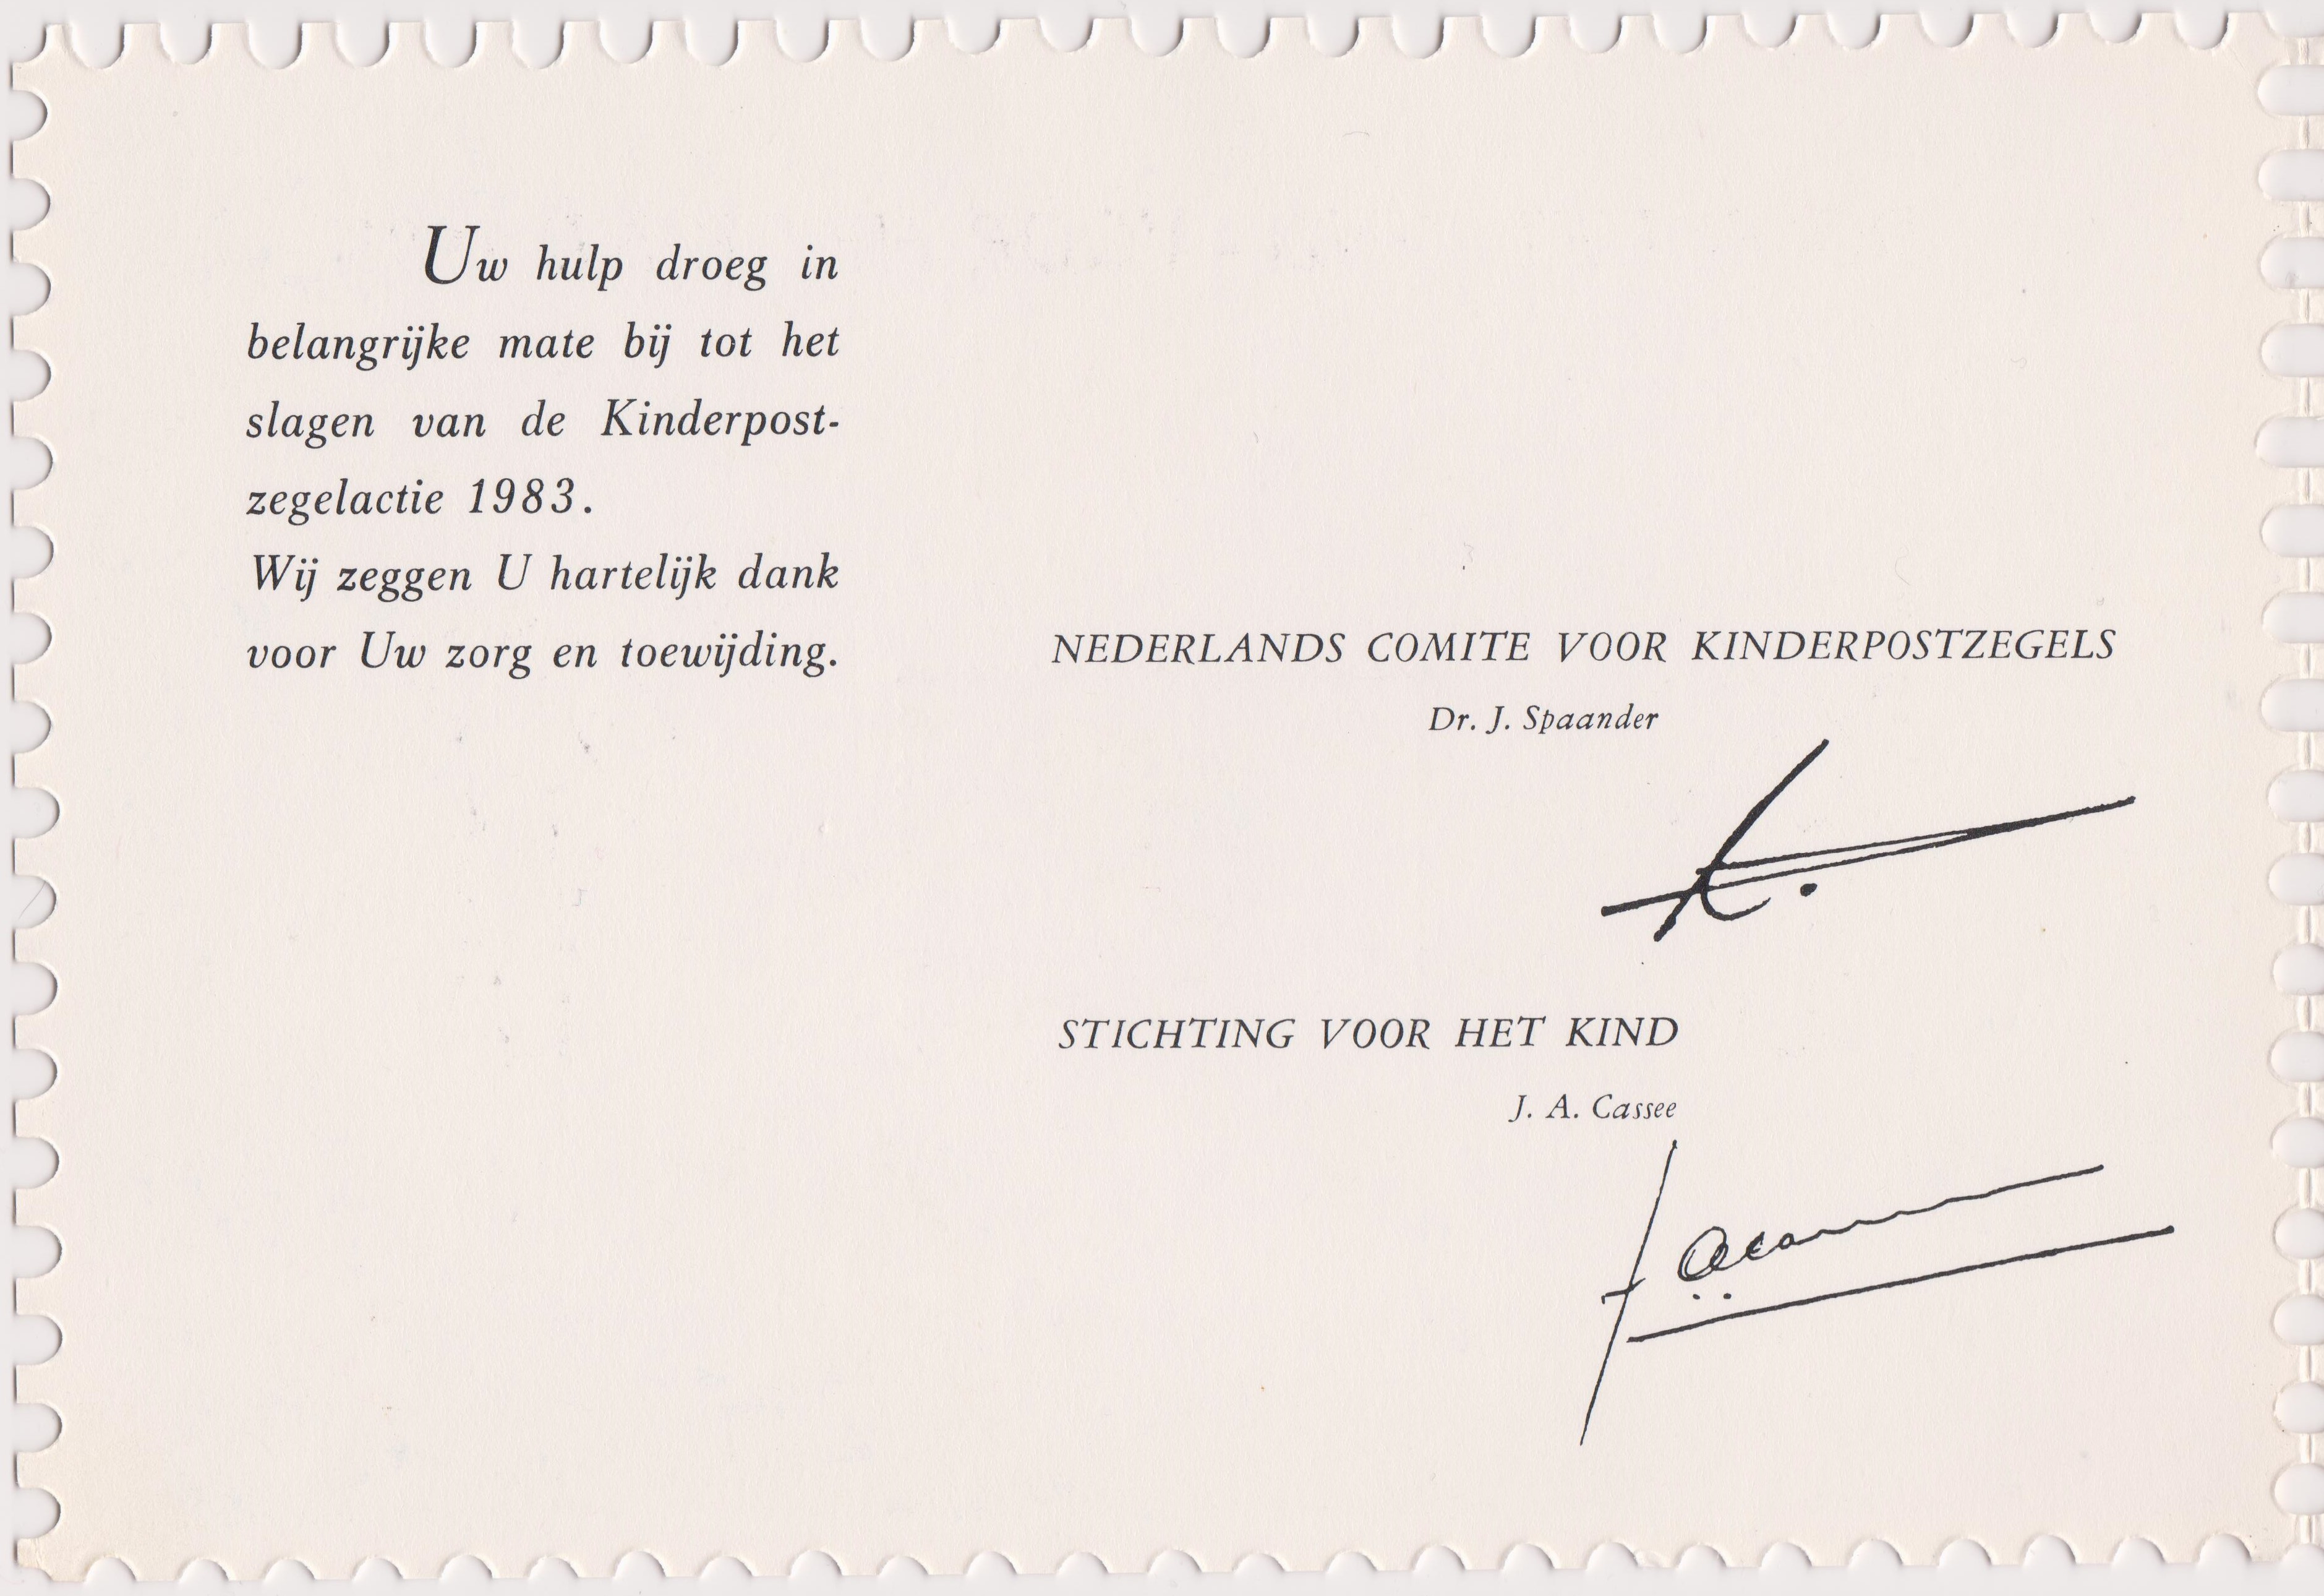 Uw hulp droeg in
belangrijke mate bij tot het
slagen van de Kinderpost-
zegelactie 1983.
Wij zeggen U hartelijk dank
voor Uw zorg en toewijding.
NEDERLANDS COMITE VOOR KINDERPOSTZEGELS
Dr. J. Spaander
STICHTING VOOR HET KIND
J. A. Cassee